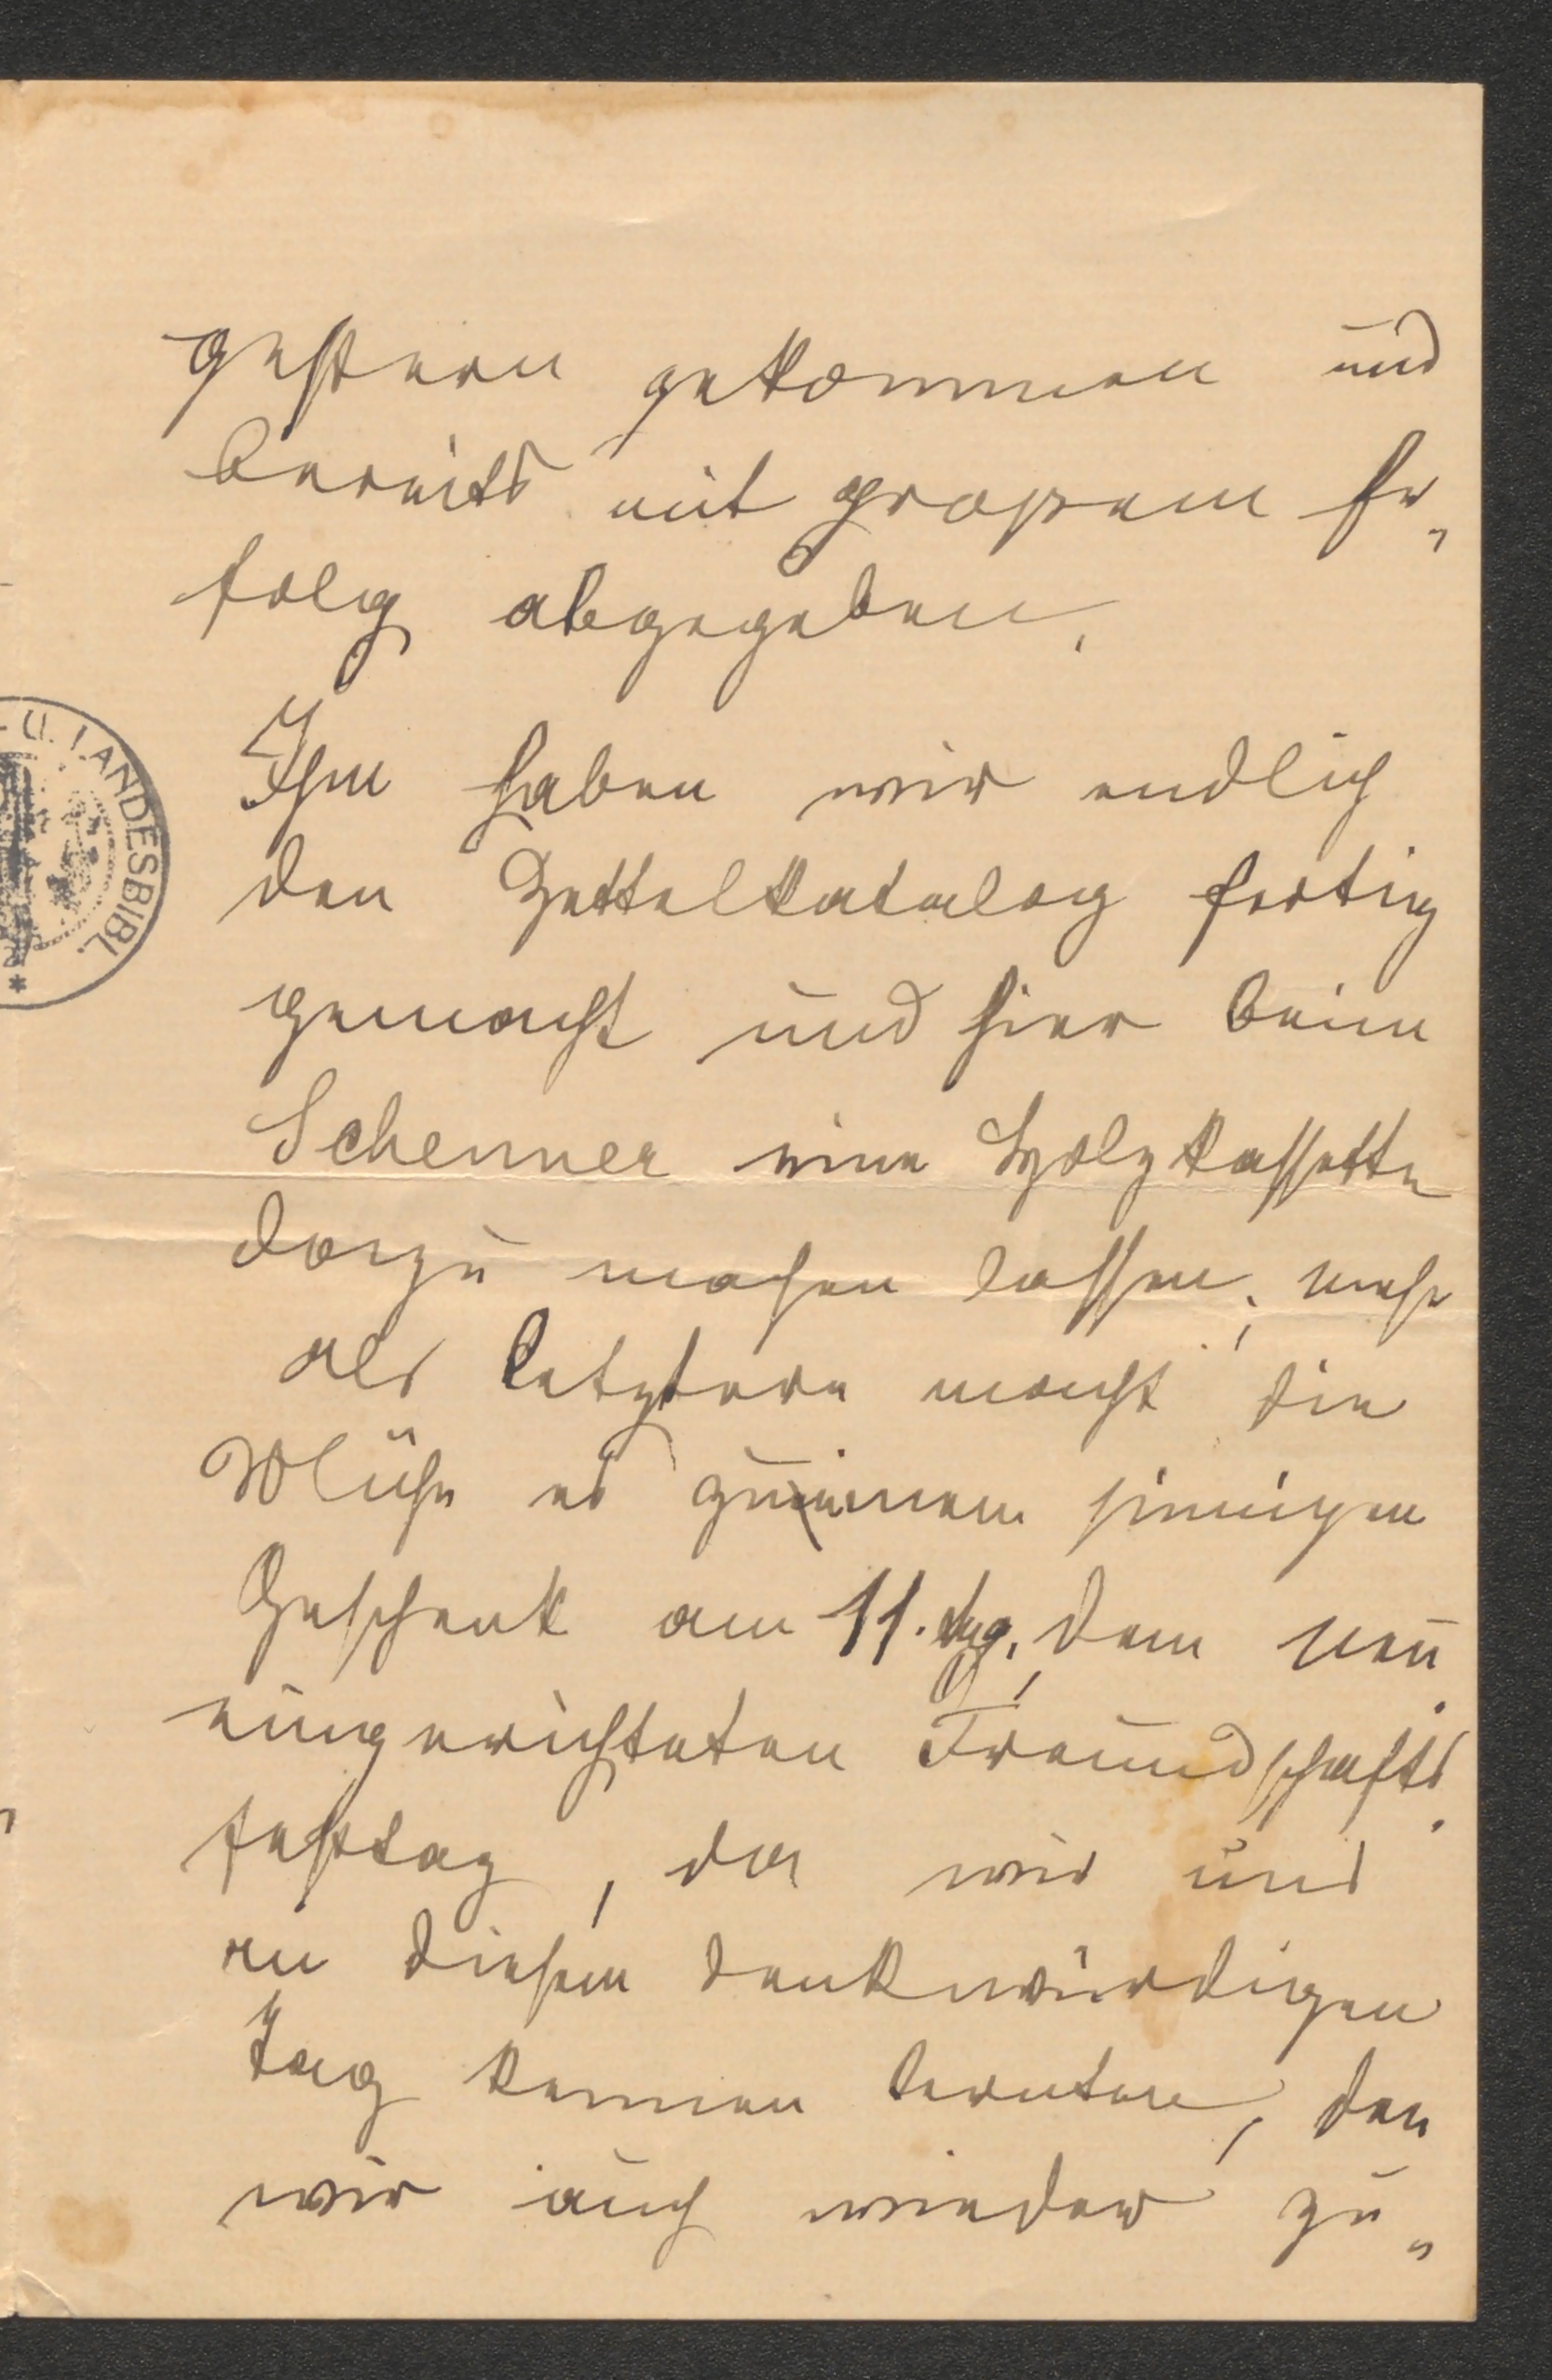 gestern gekommen und
bereits mit großem Er„
folg abgegeben.
Ihm haben wir endlich
den Zettelkatalog fertig
gemacht und hier beim
Schenner eine Holzkassette
dazu machen lassen; mehr
als letztere macht die
Mühe es zu einem sinnigen
Geschenk am 11. dem neu
eingerichteten Freundschafts
festag, da wir uns
an diesem denkwürdigen
Tag kennen lernten, den
wir auch wieder zu„
U. LANDESBIBL. *